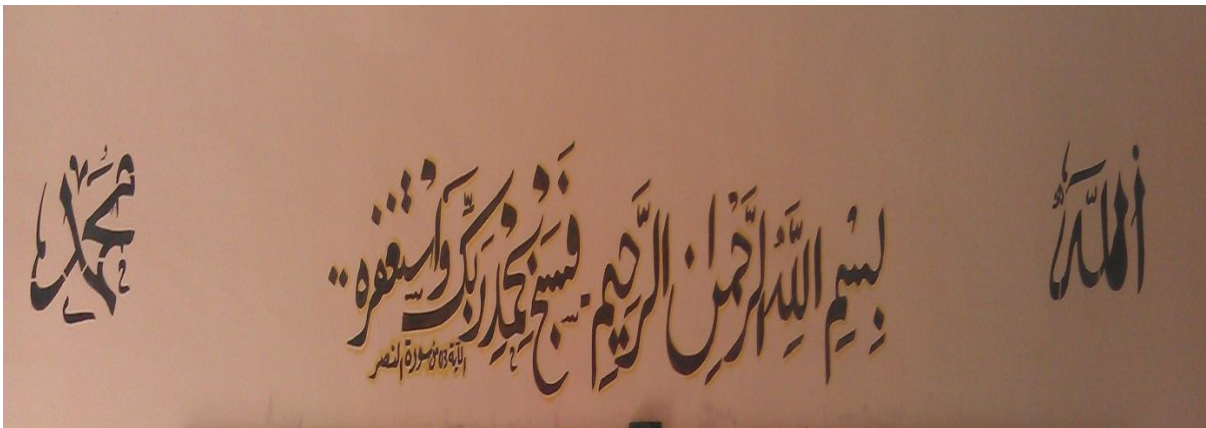 الله
بِسْمِ اللَّهِ الرَّحْمٰنِ الرَّحِيمِ . فَسَبِّحْ بِحَمْدِ رَبِّكَ وَاسْتَغْفِرْهُ ..
الآية 03 من سورة النصر
محمد